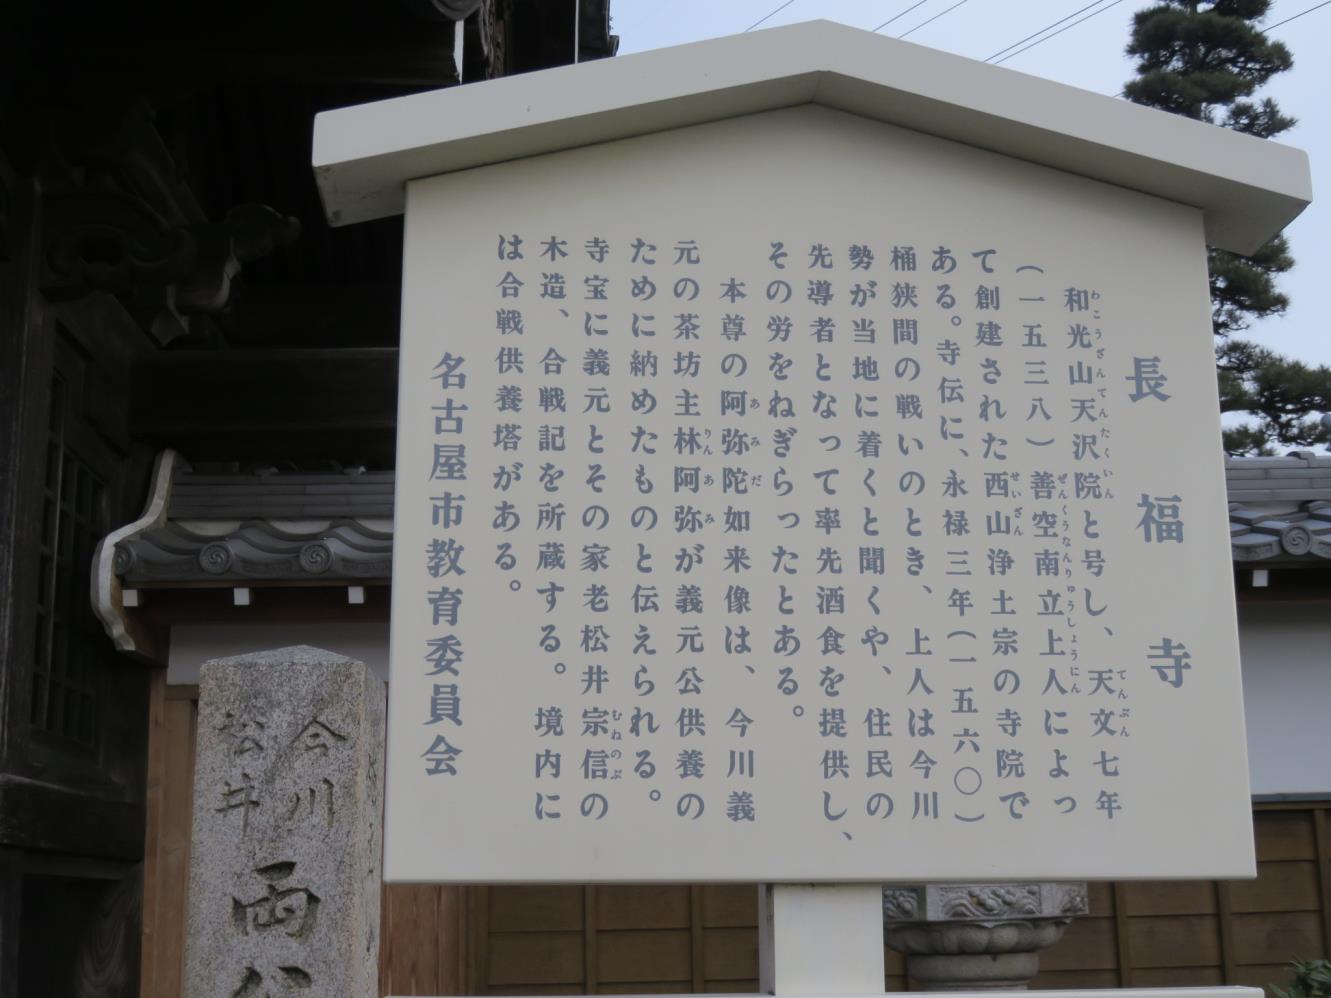 長福寺
和光山天沢院と号し、天文七年
（一五三八）善空南立上人によっ
て創建された西山浄土宗の寺院で
ある。寺伝に、永禄三年（一五六〇）
桶狭間の戦いのとき、上人は今川
勢が当地に着くと聞くや、住民の
先導者となって率先酒食を提供し、
その労をねぎらったとある。
本尊の阿弥陀如来像は、今川義
元の茶坊主林阿弥が義元公供養の
ために納めたものと伝えられる。
寺宝に義元とその家老松井宗信の
木造、合戦記を所蔵する。境内に
は合戦供養塔がある。
名古屋市教育委員会
わこうざんてんたくいん
てんぶん
ぜんくうなんりゅうしょうにん
せいざん
あみだ
りんあみ
むねのぶ
今川
松井
両公